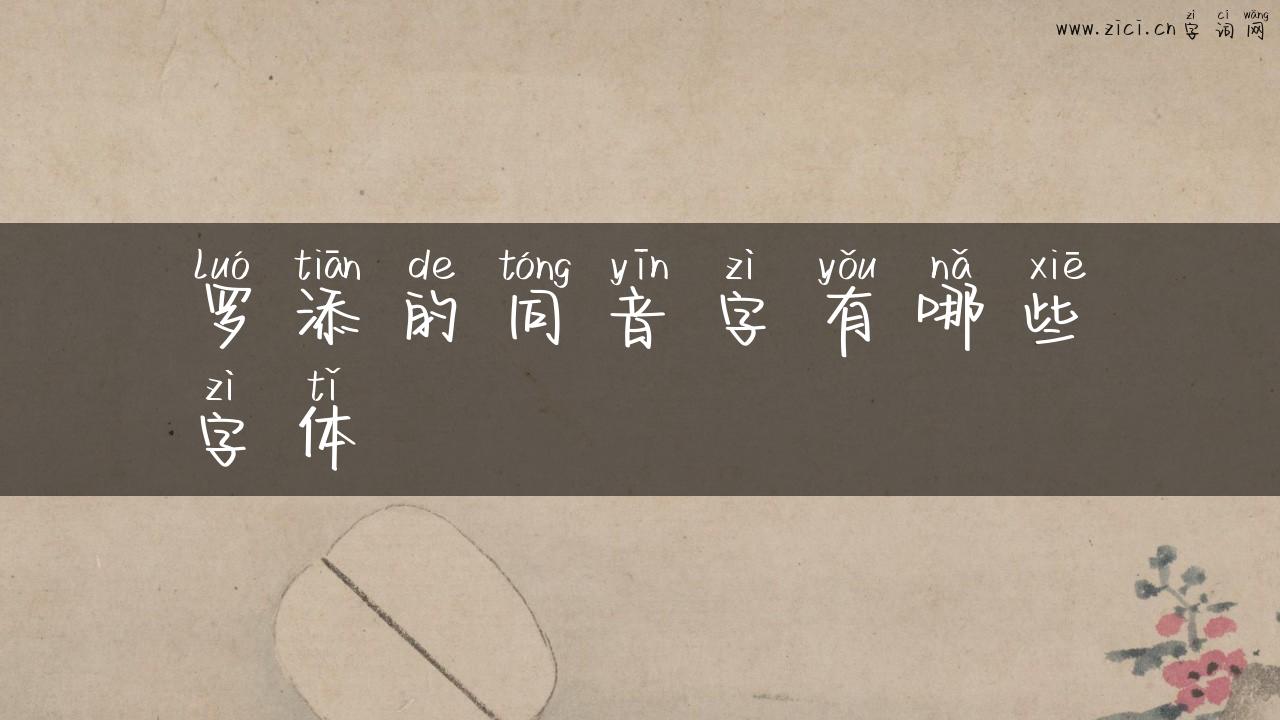 zì cí wǎng
www.zici.cn字词网
luó tiān de tóng yīn zì yǒu nǎ xiē
罗添的同音字有哪些
zì tǐ
字体